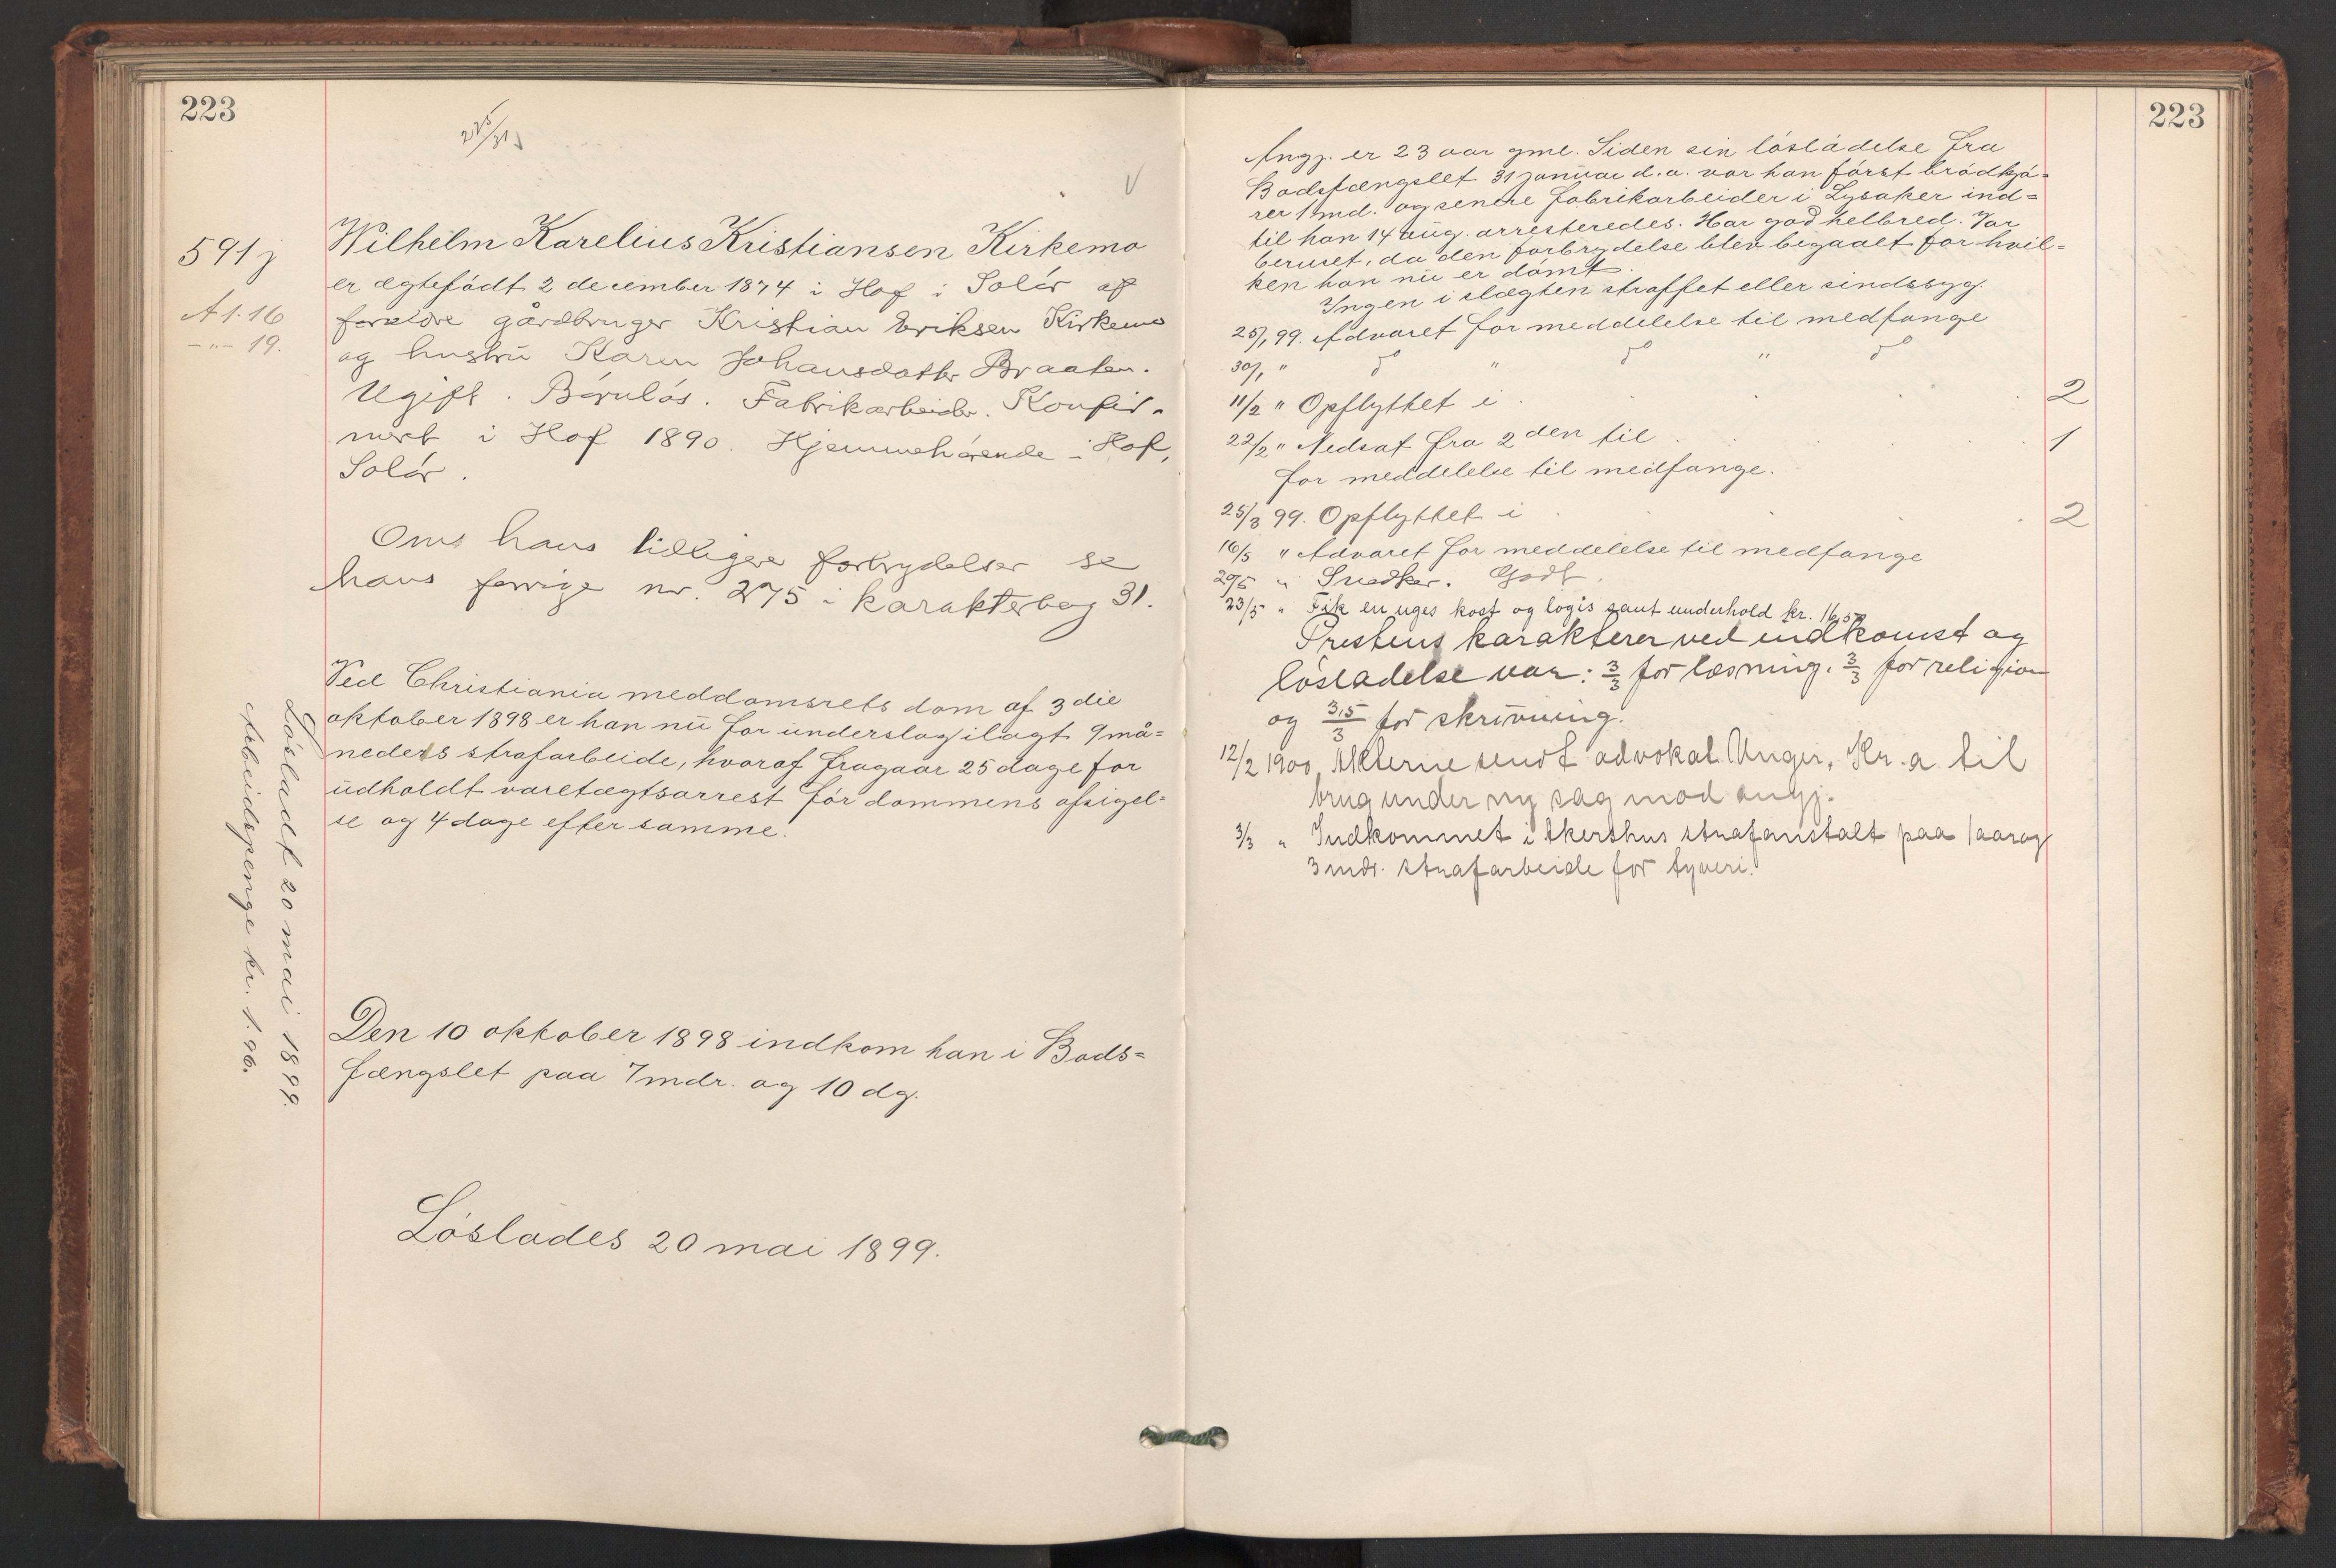 223
275/31 j
V
591 j
A 1. 16
-"- 19.
Wilhelm Karelius Kristiansen Kirkemo
er ægtefödt 2 december 1874 i Hof i Solör af
forældre gårdbruger Kristian Eriksen Kirkemo
og hustru Karen Johansdatter Braaten.
Ugift. Barnlös. Fabrikarbeider. Konfir-
mert i Hof 1890. Hjemmehörende i Hof,
Solör.
Om hans tidligere forbrydelser se
hans forrige nr. 275 i karakterbog 31.
Ved Christiania meddomsrets dom af 3die
oktober 1898 er han nu for underslag ilagt 9 må=
neders strafarbeide, hvoraf fragaar 25 dage for
udholdt varetægtsarrest för dommens afsigel=
se og 4 dage efter samme.
Lösladt 20 mai 1899.
Arbeidspenge kr. 1.96.
Den 10 oktober 1898 indkom han i Bods=
fængslet paa 7 mdr. og 10 dg.
Löslades 20 mai 1899.
223
Angj. er 23 aar gml. Siden sin lösladelse fra
Bodsfængslet 31 januar d.a. var han först brödkjö=
rer 1 md. og senere fabrikarbeider i Lysaker ind=
til han 14 aug. arresteredes. Har god helbred. Var
beruset, da den forbrydelse blev begaaet for hvil=
ken han nu er dömt.
Ingen i slægten straffet eller sindssyg.
25/1 99. Advaret for meddelelse til medfange
30/1 " do " do " do
11/2 " Opflyttet i 2
22/2 " Nedsat fra 2den til 1
for meddelelse til medfange.
25/3 99. Opflyttet i 2
16/5 " Advaret for meddelelse til medfange
20/5 " Snedker. Godt.
23/5 " Fik en uges kost og logis samt underhold kr. 16,50
Prestens karakterer ved indkomst og
lösladelse var: 3/3 for læsning. 3/3 for religion
og 3,5/3 for skrivning.
12/2 1900, Akterne sendt advokat Unger, Kr.a til
brug under ny sag mod angj.
3/3 " Indkommet i Akershus strafanstalt paa 1 aar og
3 mdr. strafarbeide for tyveri.